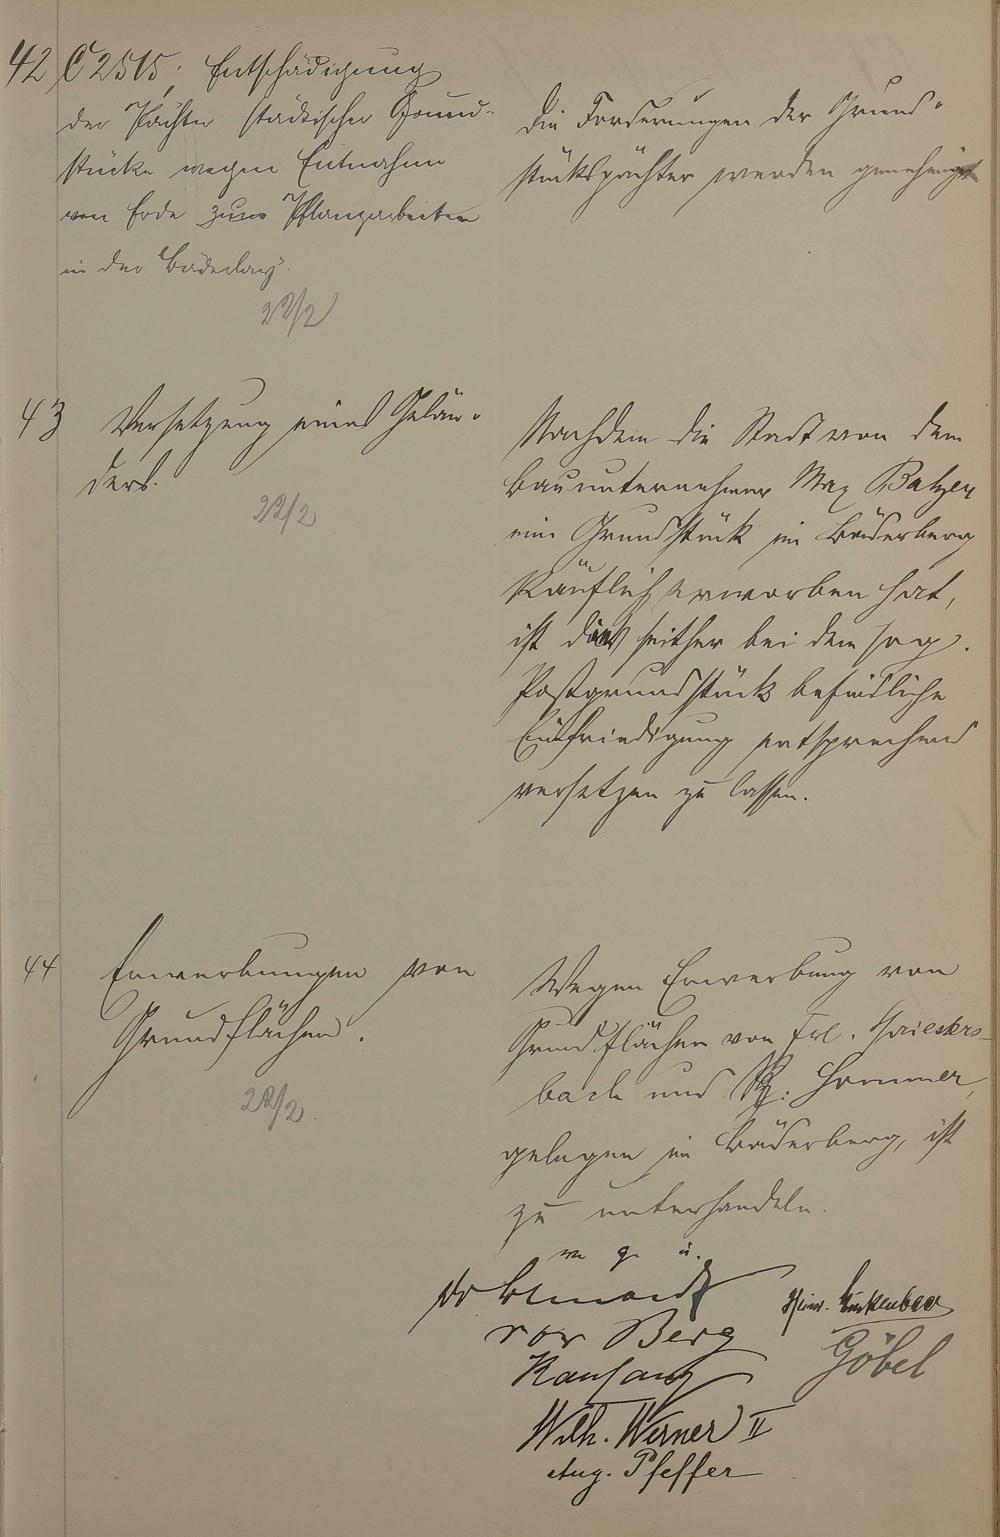 42 C 2515, Entschädigung
der Pächter städtischer Grund-
stücke wegen Entnahme
von Erde zum Pflanzarbeiten
in der
22/2
Die Forderungen der Grund-
stückspächter werden genehmigt
43 Versetzung eines Gelän-
ders.
22/2
Nachdem die Stadt von dem
Bauunternehmer Max Balzer
ein Grundstück im Bäderberg
käuflich erworben hat,
ist die seither bei dem sog.
Postgrundstück befindliche
Einfriedigung entsprechend
versetzen zu lassen.
44 Erwerbungen von
Grundflächen.
22/2.
Wegen Erwerbung von
Grundflächen von Frl.
bach und Hommer,
gelegen im Bäderberg, ist
zu unterhandeln.
v. g. u.
Dr
vor Berg
Heinr.
Göbel
Wilh. Werner II
Aug. Pfeffer